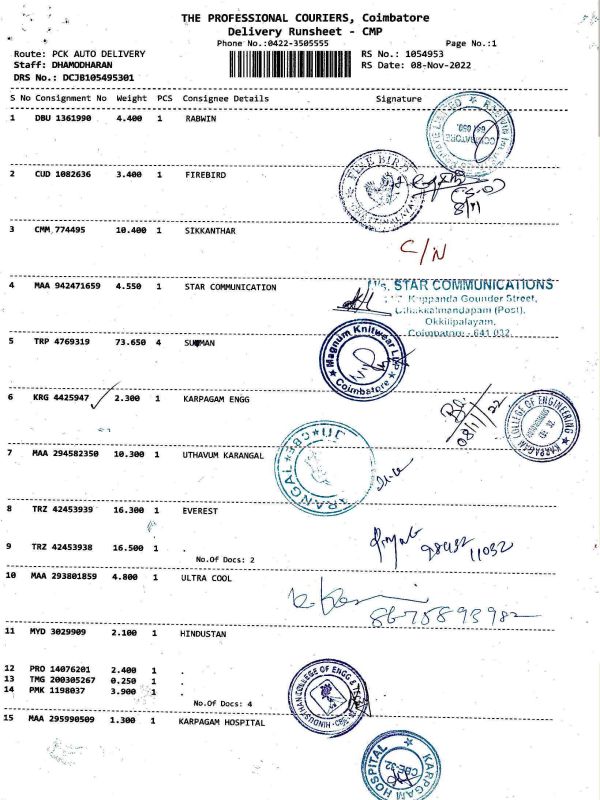 THE PROFESSIONAL COURIERS, Coimbatore
Delivery Runsheet - CMP
Phone No.:0422-3505555 Page No.:1
Route: PCK AUTO DELIVERY RS No.: 1054953
Staff: DHAMODHARAN RS Date: 08-Nov-2022
DRS No.: DCJB105495301
S No Consignment No Weight PCS Consignee Details Signature
1 DBU 1361990 4.400 1 RABWIN
2 CUD 1082636 3.400 1 FIREBIRD
FIRE BIRD
8/11
3 CMM 774495 10.400 1 SIKKANTHAR
C/N
4 MAA 942471659 4.550 1 STAR COMMUNICATION
M/s. STAR COMMUNICATIONS
Kuppanda Gounder Street,
Uthakkalmandapam (Post),
Okkilipalayam,
Coimbatore - 641 032
5 TRP 4769319 73.650 4 SUMAN
Magnum Knitwear LLP
Coimbatore
6 KRG 4425947 2.300 1 KARPAGAM ENGG
08/11/22
KARPAGAM COLLEGE OF ENGINEERING
7 MAA 294582350 10.300 1 UTHAVUM KARANGAL
8 TRZ 42453939 16.300 1 EVEREST
9 TRZ 42453938 16.500 1 .
No.Of Docs: 2
10 MAA 293801859 4.800 1 ULTRA COOL
8675893982
11 MYD 3029909 2.100 1 HINDUSTAN
12 PRO 14076201 2.400 1 .
13 TMG 200305267 0.250 1 .
14 PMK 1198037 3.900 1 .
No.Of Docs: 4
HINDUSTHAN COLLEGE OF ENGG & TECH
15 MAA 295990509 1.300 1 KARPAGAM HOSPITAL
KARPGAM HOSPITAL
CBE-32